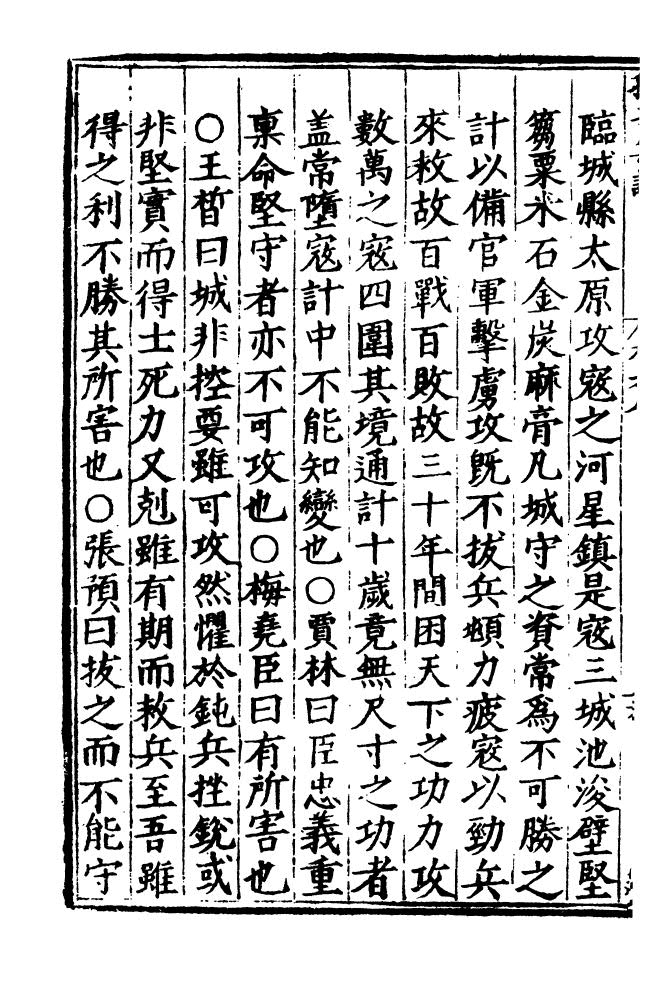 臨城縣太原攻寇之河星鎮是寇三城池浚壁堅
芻粟米石金炭麻膏凡城守之資常爲不可勝之
計以備官軍擊虜攻旣不拔兵頓力疲寇以勁兵
來救故百戰百敗故三十年間困天下之功力攻
數萬之寇四圍其境通計十歲竟無尺寸之功者
盖常墮寇計中不能知變也○賈林曰臣忠義重
稟命堅守者亦不可攻也○梅堯臣曰有所害也
○王晳曰城非控要雖可攻然懼於鈍兵挫銳或
非堅實而得士死力又剋雖有期而救兵至吾雖
得之利不勝其所害也○張預曰拔之而不能守